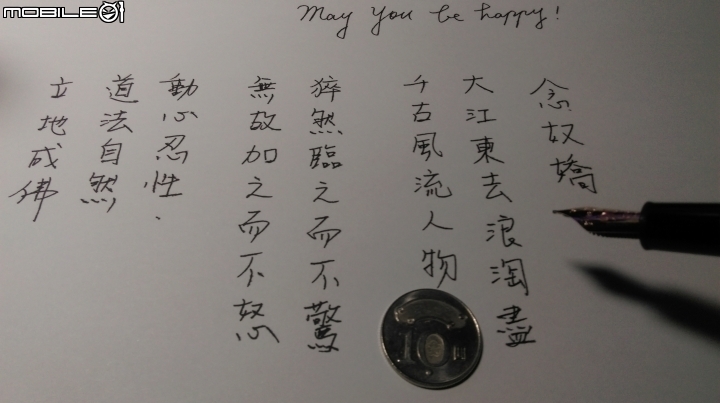 MOBILE01
May you be happy!
念奴嬌
大江東去浪淘盡
千古風流人物
猝然臨之而不驚
無故加之而不怒
動心忍性.
道法自然
立地成佛
10